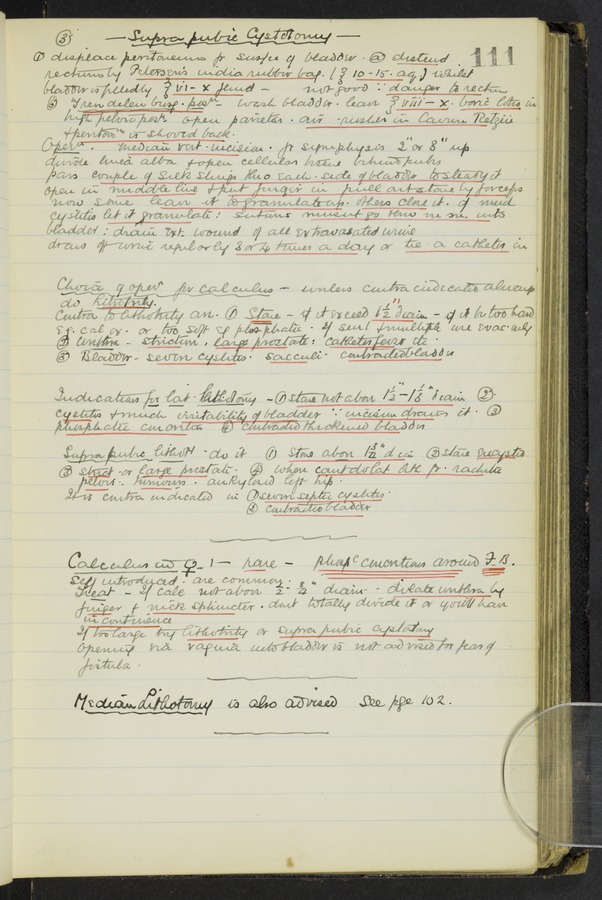 (3) — Supra pubic Cystotomy —
111
① displace peritoneum fr surface of bladder. @ distend
rectum by Petersen's india rubber bag. (℥ 10-15. aq) whilst
bladder is filled by ℥ vi - x fluid — not good ∵ danger to rectum
⑥ Trendelenburg posn — wash bladder. leave ℥ viii - x. boric lotion in
high pelvic posn open parietes. air rushes in Cavum Retzii
+ peritonm is shoved back.
Opern. median vert. incision. fr symphysis 2" or 3" up
divide linea alba + open cellular tissue behind pubes
pass couple of silk slings thro each side of bladder to steady it
open in middle line + put finger in pull out stone by forceps
now some leave it to granulate up. others close it. if much
cystitis let it granulate: sutures mustnt go thro m.m. into
bladder: drain ext. wound of all extravasated urine
draw off urine regularly 3 or 4 times a day or tie a catheter in
Choice of opern for calculus — unless contra indicated always
do lithotrity.
Contra to lithotrity are. ① Stone — if it exceed 1½" diam — if it be too hard
eg. cal ox. or too soft eg phosphatic. if sevl + multiple are evac. only
② Urethra — stricture, large prostate: catheter fever etc.
③ Bladder — severe cystitis. sacculi. contracted bladder
Indications for lat. lithotomy — ① stone not above 1½"-1⅓" diam ②
cystitis + much irritability of bladder ∵ incision drains it. ③
phosphatic concretion ④ contracted thickened bladder
Supra pubic lithoty — do it ① stone above 1¾" diam ② stone encysted
③ strict. or large prostate. ④ when cant do lat lith fr. rachitic
pelvis. tumours. ankylosed left hip.
It is contra indicated in ① severe septic cystitis
② contracted bladder
Calculus in ♀ — rare — phosc concretions around F.B.
self introduced. are common.
Treat — If calc not above ½-¾" diam — dilate urethra by
finger + nick sphincter. dont totally divide it or you'll have
incontinence
If too large try lithotrity or supra pubic cystotomy
opening via vagina into bladder is not advised for fear of
fistula.
Median Lithotomy is also advised See pge 102.